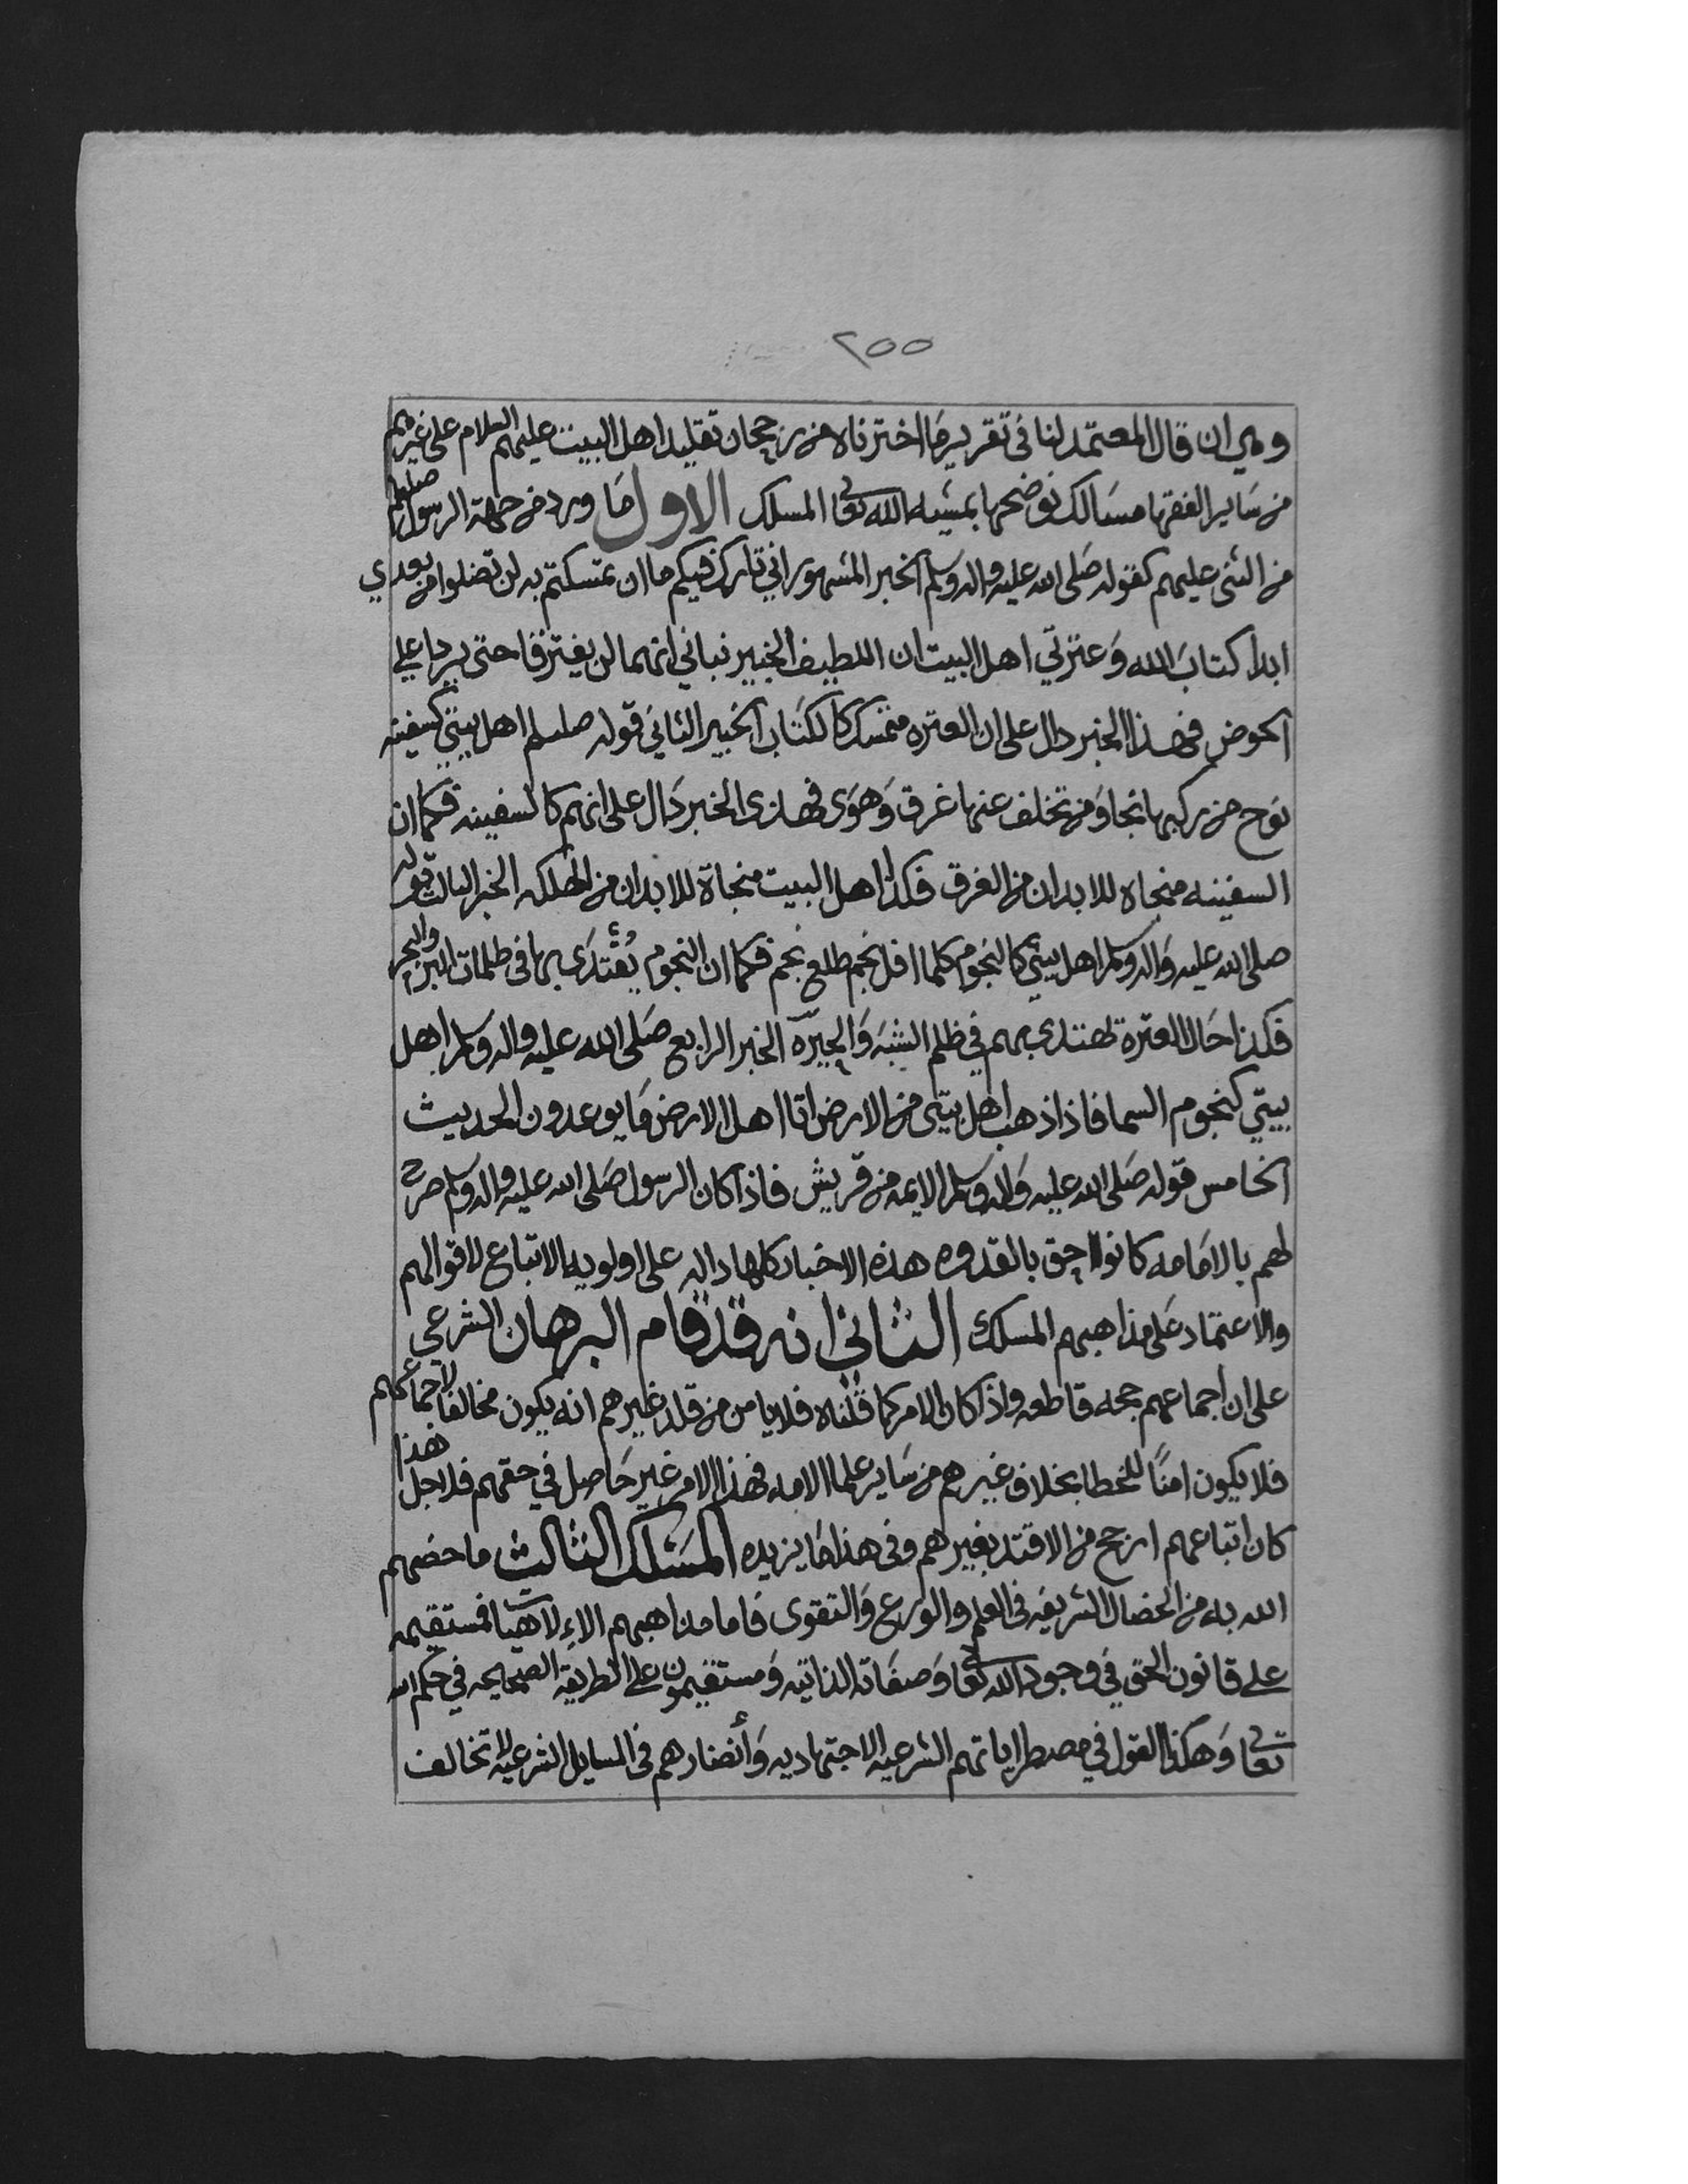 ٢٥٥
وهي ان قال المعتمد لنا في تقرير ما اخترناه من رجحان تقليد اهل البيت عليهم السلام على غيرهم
من ساير الفقها مسالك نوضحها بمشيه الله تعالى المسلك الاول ما ورد من جهة الرسول صلعم
من الثنى عليهم كقوله صلى الله عليه واله وسلم الخبر المشهور اني تارك فيكم ما ان تمسكتم به لن تضلوا من بعدي
ابدا كتاب الله وعترتي اهل البيت ان اللطيف الخبير نباني انهما لن يفترقا حتى يردا علي
الحوض فهذا الخبر دال على ان العتره متمسك كالكتاب الخبر الثاني قوله صلعم اهل بيتي كسفينه
نوح من ركبها نجا ومن تخلف عنها غرق وهوى فهذى الخبر دال على انهم كالسفينه فكما ان
السفينه منجاه للابدان من الغرق فكذا اهل البيت منجاة للابدان من الهلكه الخبر الثالث قوله
صلى الله عليه واله وسلم اهل بيتي كالنجوم كلما افل نجم طلع نجم فكما ان النجوم يُقتدى بها في ظلمات البر والبحر
فكذا حال العتره تهتدى بهم في ظلم الشبه والحيره الخبر الرابع صلى الله عليه واله وسلم اهل
بيتي كنجوم السما فاذا ذهب اهل بيتي من الارض اتا اهل الارض ما يوعدون الحديث
الخامس قوله صلى الله عليه واله وسلم الايمه من قريش فاذا كان الرسول صلى الله عليه واله وسلم صرح
لهم بالامامه كانوا احق بالقدوه هذه الاخبار كلها داله على اولويه الاتباع لاقوالهم
والاعتماد على مذاهبهم المسلك الثاني انه قد قام البرهان الشرعي
على ان اجماعهم حجه قاطعه واذا كان الامر كما قلناه فلا يامن من قلد غيرهم انه يكون مخالفا لاجماعهم
فلا يكون امنًا للخطا بخلاف غيرهم من ساير علما الامه فهذا الامر غير حاصل في حقهم فلاجل هذا
كان اتباعهم ارجح من الاقتد بغيرهم وفي هذا ما يزيده المسلك الثالث ما خصهم
الله به من الخصال الشريفه في العلم والورع والتقوى فاما مذاهبهم الالاهيا فمستقيمه
على قانون الحق في وجود الله تعالى وصفاته الذاتيه ومستقيمون على الطريقه الصحيحه في حكم الله
تعالى وهكذا القول في الشرعيه الاجتهاديه وأنضارهم في المسايل الشرعيه لا تخالف